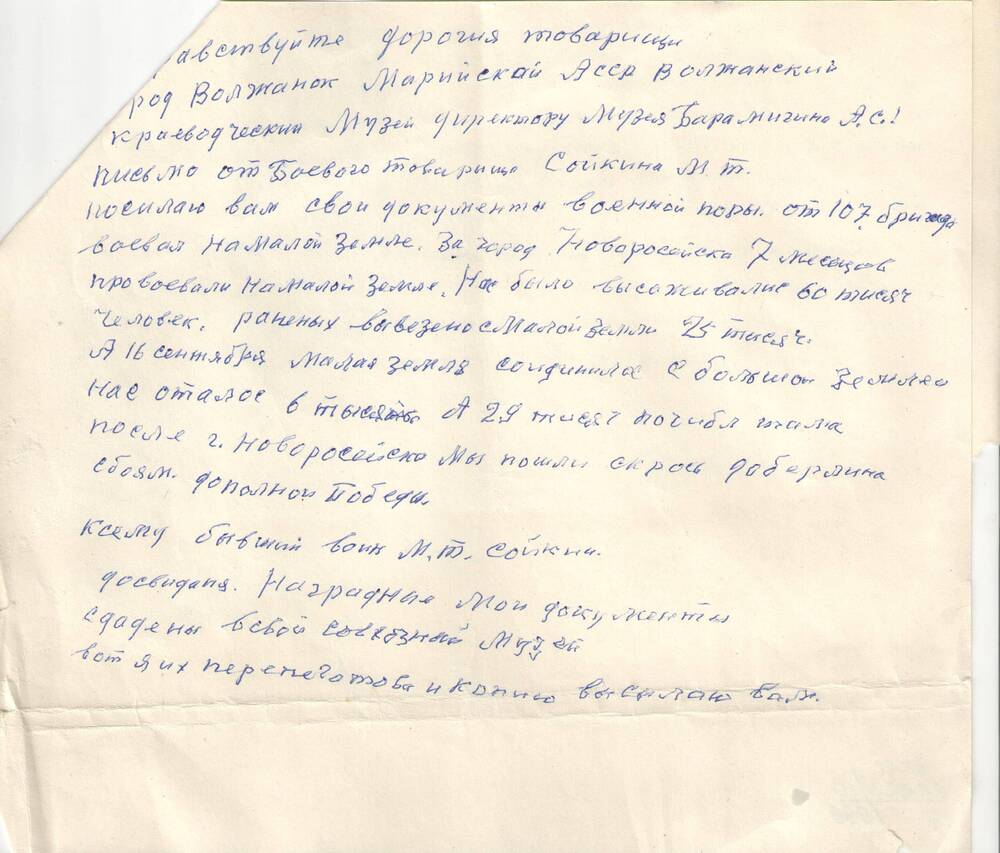 равствуйте дорогия товарищи
род Волжанок Марийской Асср Волжанский
краеводческий Музей директору Музея Барамигина А.С.!
письмо от Боевого товарища Сойкина М.Т.
посилаю вам свои документы военной поры. от 107 бригада
воевал на Малой Земле. За город Новоросейска 7 месецов
провоевали на Малой Земле. Нас было высаживалис 60 тисяч
человек. раненых вывезено с Малой Земли 25 тысяч.
А 16 сентября малая земля соидинилас с большой землеи
нас осталос 6 А 29 тисяч погибл тама
после г. Новоросейска мы пошли скрозь доберлина
сбоям. дополной Победы.
ксему бывший воин М.Т. Сойкин.
досвиданя. Наградные мои документы
сдадены в свой Музей
вот я их и копию высылаю вам.